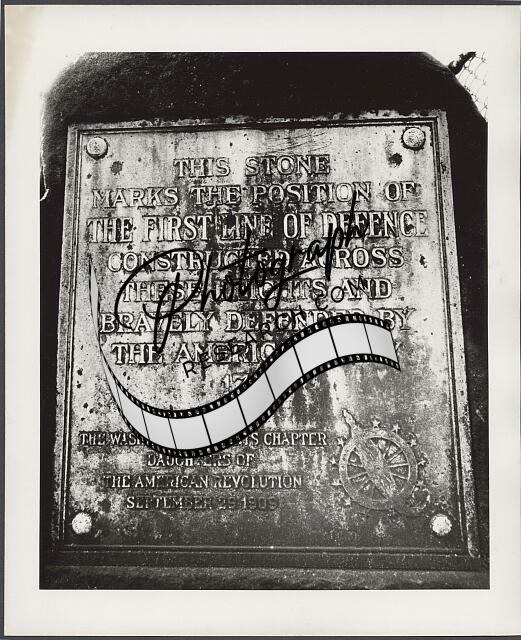 THIS STONE
MARKS THE POSITION OF
THE FIRST LINE OF DEFENCE
CONSTRUCTED ACROSS
THESE HEIGHTS AND
BRAVELY DEFENDED BY
THE AMERICAN
THE WASHINGTON HEIGHTS CHAPTER
DAUGHTERS OF
THE AMERICAN REVOLUTION
SEPTEMBER 29 1909
Photograph